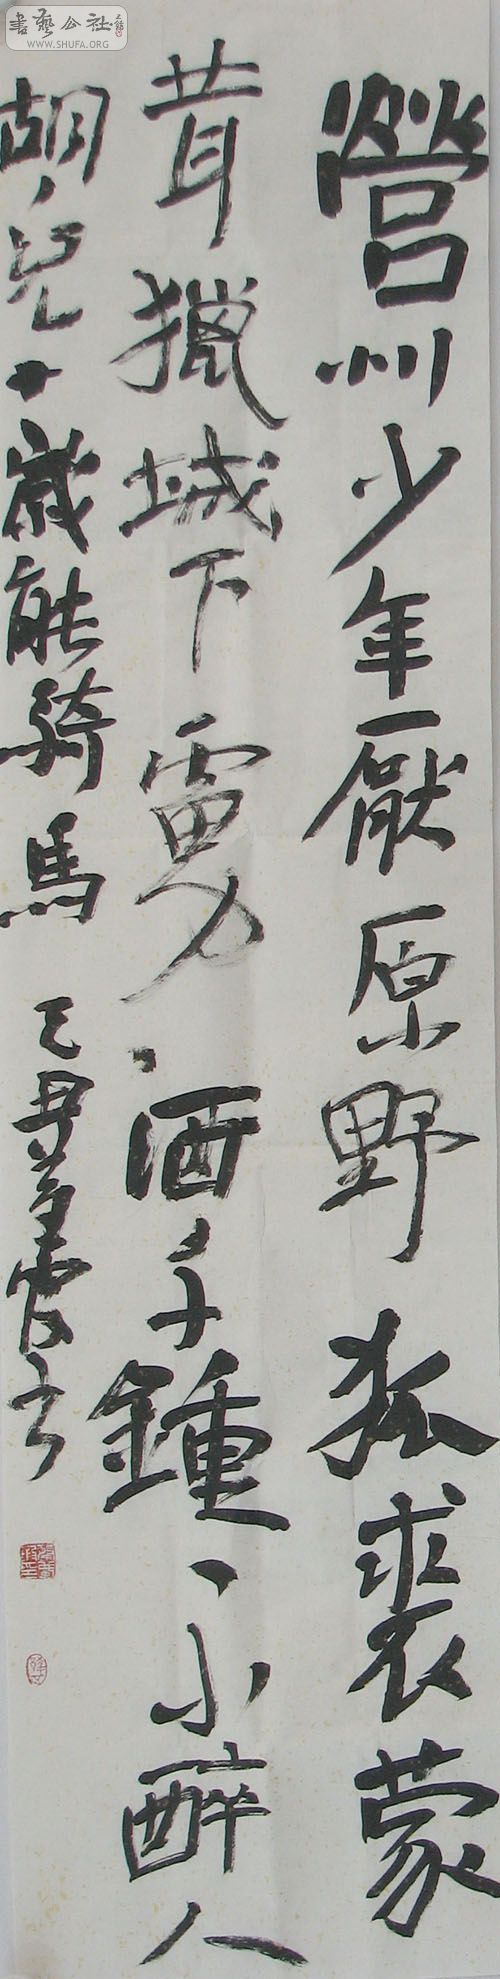 書藝公社
WWW.SHUFA.ORG
營州少年厭原野狐裘蒙
茸獵城下虜酒千鍾不醉人
胡兒十歲能騎馬